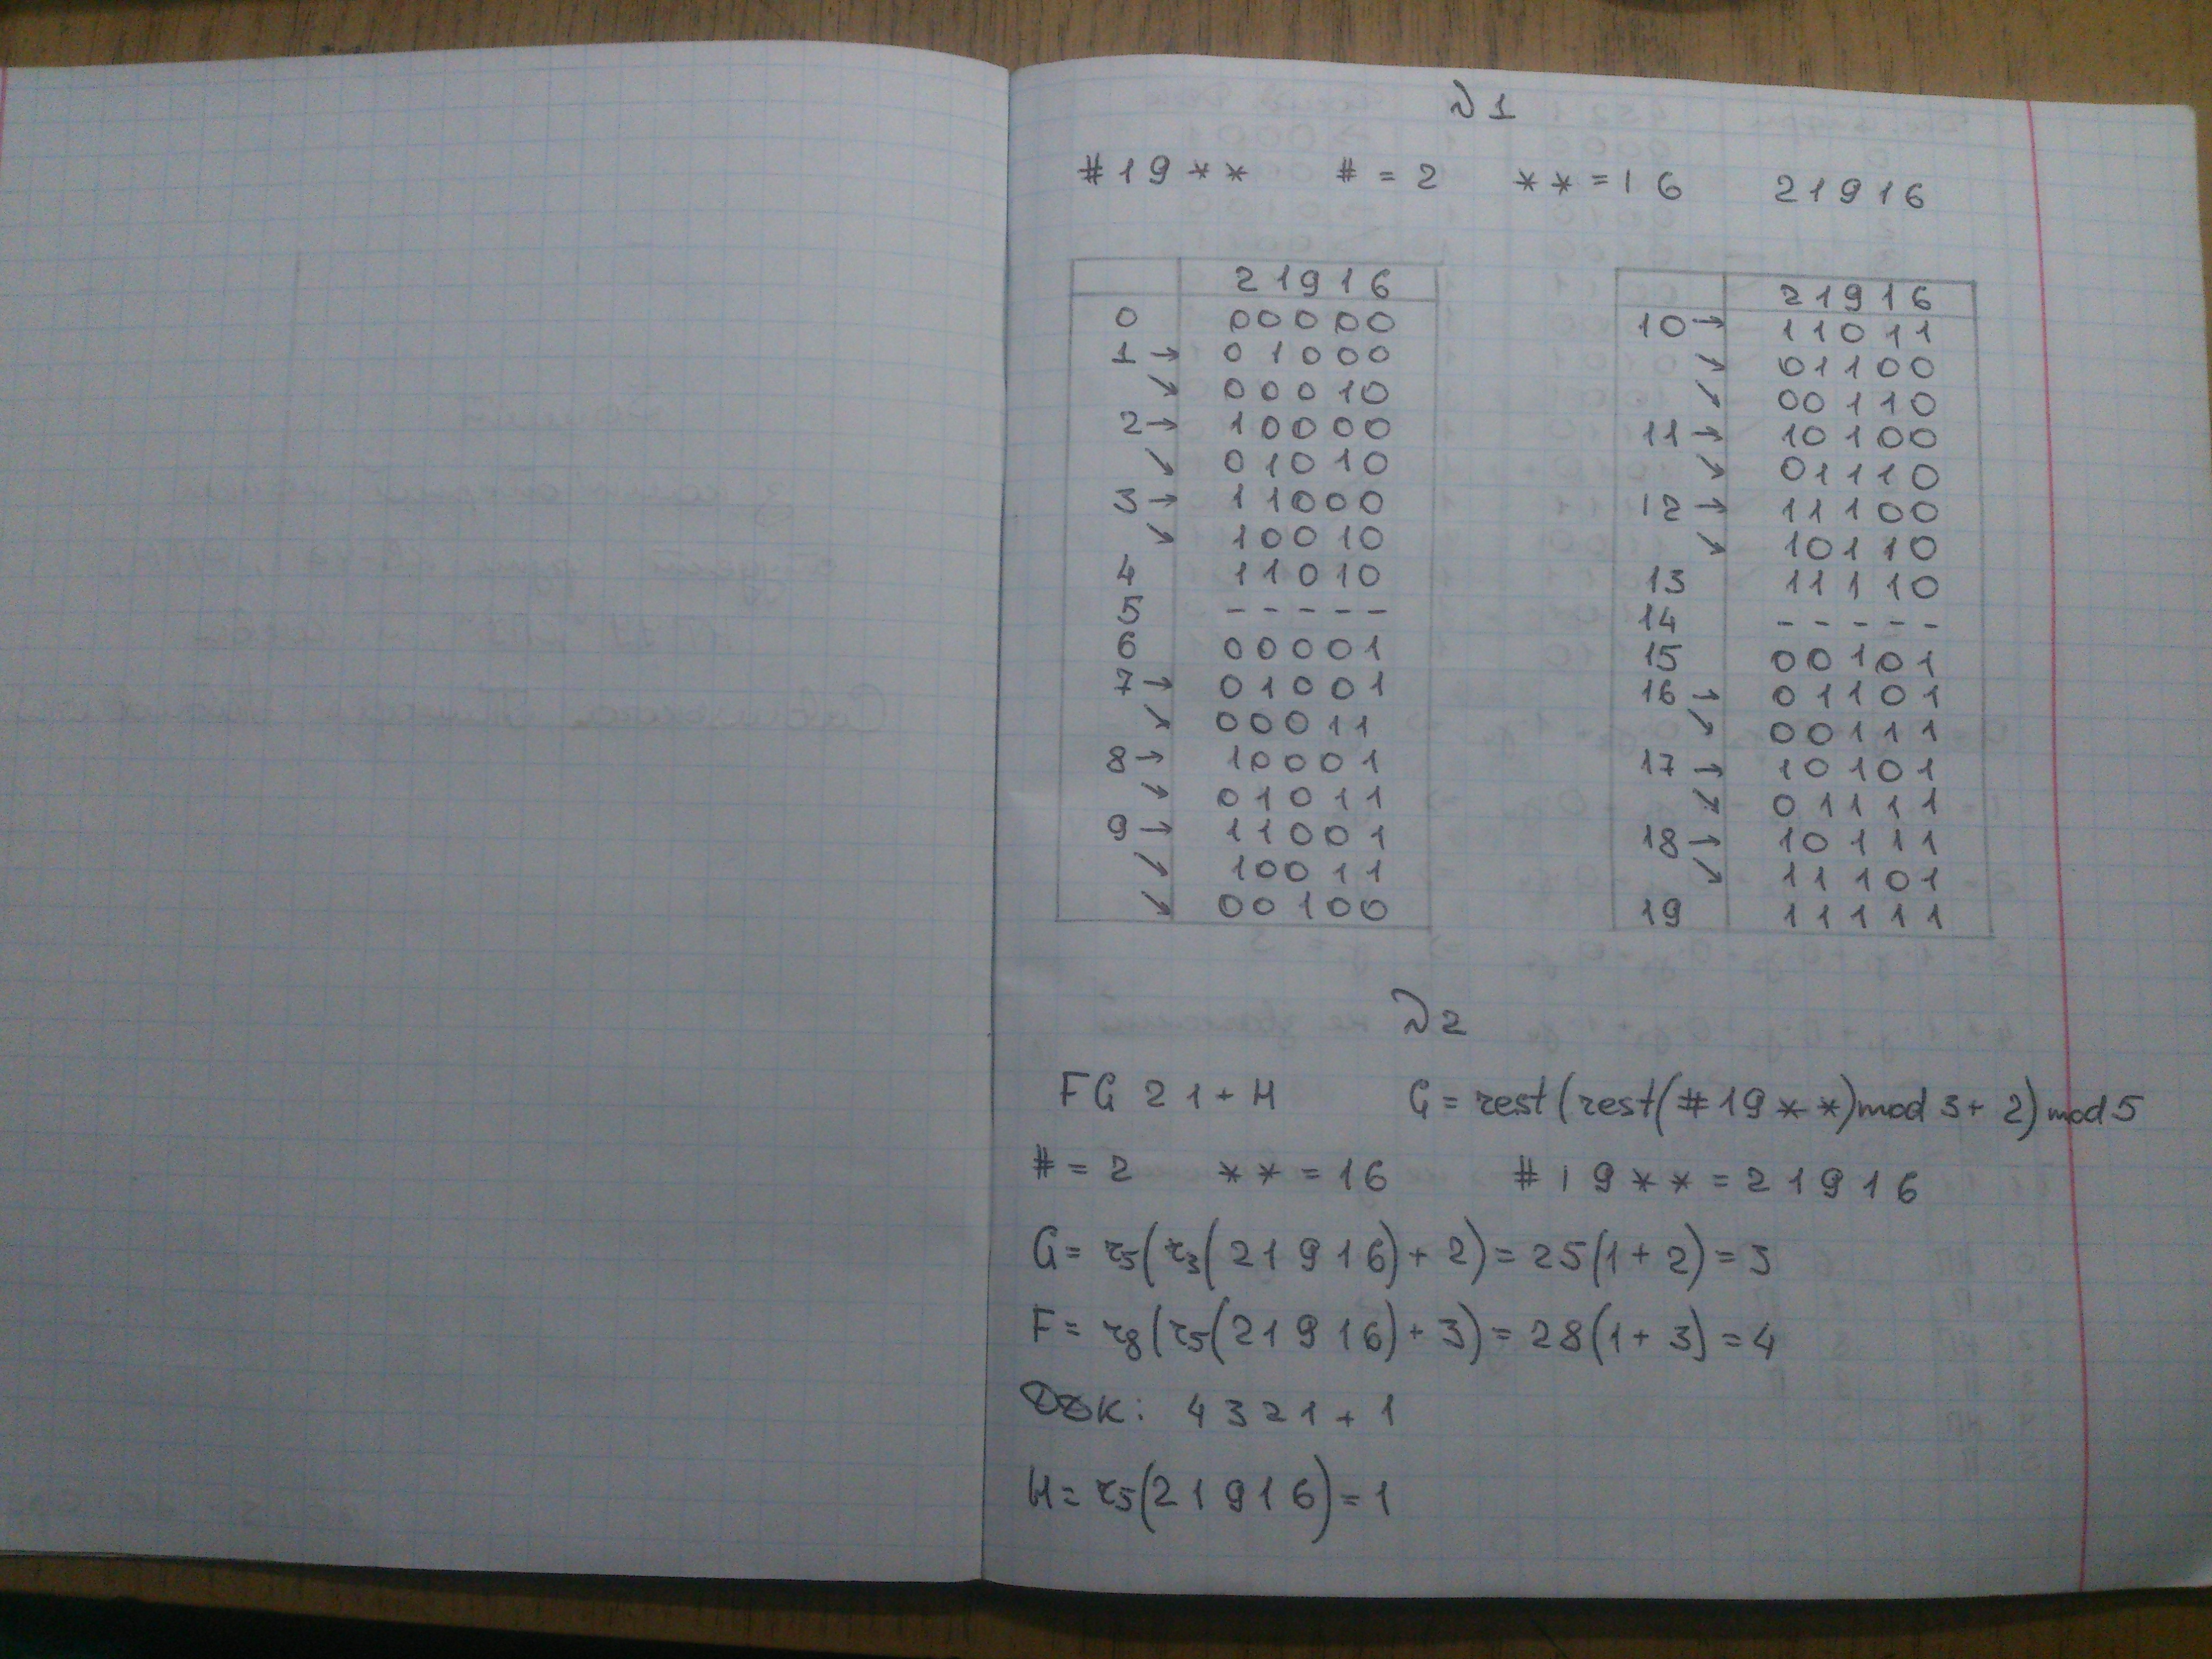 №1
#19** # = 2 ** = 16 21916
21916
0 00000
1 → 01000
↘ 00010
2 → 10000
↘ 01010
3 → 11000
↘ 10010
4 11010
5 - - - - -
6 00001
7 → 01001
↘ 00011
8 → 10001
↘ 01011
9 → 11001
↘ 10011
↘ 00100
21916
10 → 11011
↘ 01100
↘ 00110
11 → 10100
↘ 01110
12 → 11100
↘ 10110
13 11110
14 - - - - -
15 00101
16 → 01101
↘ 00111
17 → 10101
↘ 01111
18 → 10111
↘ 11101
19 11111
№2
FG 21 + H G = rest(rest(#19**)mod 3 + 2) mod 5
# = 2 ** = 16 #19** = 21916
G = r5(r3(21916) + 2) = 25(1 + 2) = 3
F = r8(r5(21916) + 3) = 28(1 + 3) = 4
ДДК: 4321 + 1
H = r5(21916) = 1